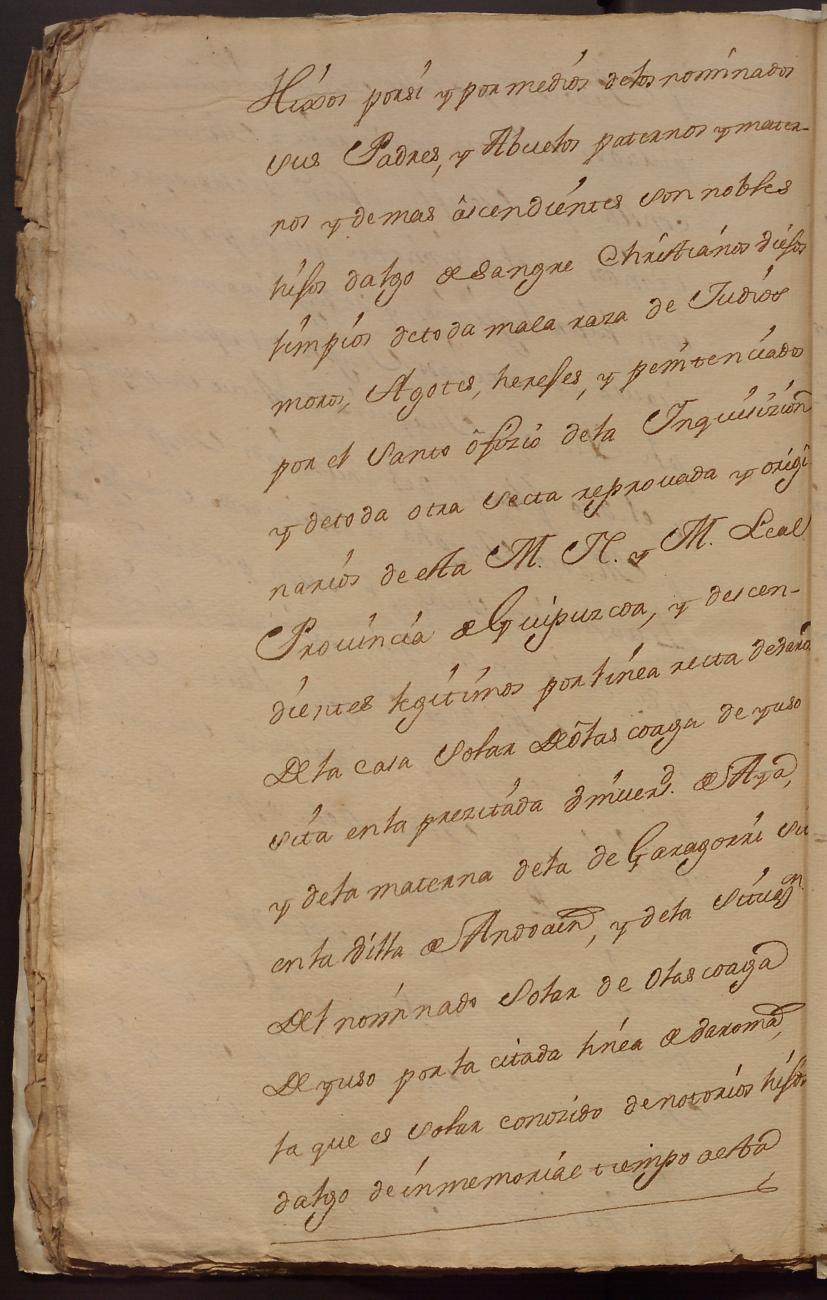 Hixos porsi y por medios delos nominados
sus Padres, y Abuelos paternos y mater-
nos y demas âscendientes son nobles
hijos dalgo de Sangre Christianos viejos
limpios detoda mala raza de Judios
moros, Agotes, herejes, y penitenciados
por el Santo ôfizio dela Inquisizion
y detoda otra Secta reprovada y origi
narios de esta M. N. y M. Leal
Provincia de Guipuzcoa, y descen-
dientes legitimos por linea recta de
De la casa Solar de ôlascoaga de yuso
sita enla prezitada de Aya,
y dela materna dela de Garagorri si
enla villa de Andoain, y dela
Del nominado Solar de Olascoaga
De yuso por la citada linea de
la que es Solar conozido denotorios hijos
dalgo de inmemorial tiempo aesta